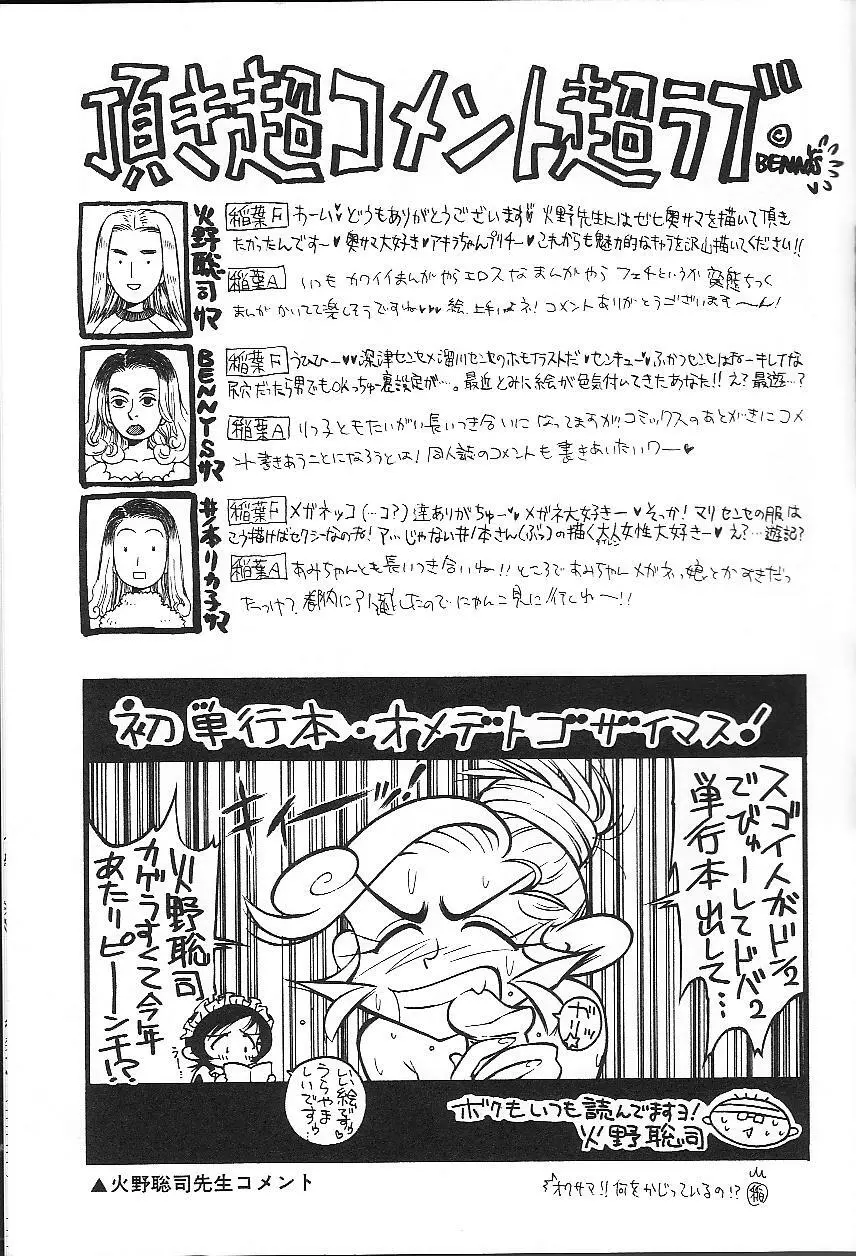 頂き超コメント超ラブ。
©BENNYS
火野聡司サマ
稲葉F おーい♥どうもありがとうございます♥火野先生にはぜヒ奥サマを描いて頂き
たかったんです〜♥奥サマ大好き♥アキラちゃんプリチー♥これからも魅力的なキャラを沢山描いてください!!
稲葉A いつもカワイイまんがやらエロスなまんがやらフェチというか変態ちっく
まんがかいてて楽しそうですね♥♥♥絵、上手いよネ!コメントありがとうございます〜ん!
BENNY'Sサマ
稲葉F うひひー♥♥深津センセ×溜川センセのホモイラストだ♥センキュー♥ふかつセンセはおーキレイな
尻穴だったら男でもOKっちゅー裏設定が…。最近とみに絵が色気付いてきたあなた!!え?最遊…?
稲葉A りっ子ともたいがい長いつき合いになってますがコミックスのあとがきにコメ
ント書きあうことになろうとは!同人誌のコメントも書きあいたいワー♥
井ノ本リカ子サマ
稲葉F メガネッコ(…コ?)達ありがちゅー♥メガネ大好きー♥そっか!マリセンセの服は
こう描けばセクシーなのね!ア…じゃない井ノ本さん(ぷっ)の描く大人女性大好きー♥え?…遊記?
稲葉A あみちゃんとも長いつき合いね!!ところであみちゃんメガネっ娘とかすきだっ
たっけ?都内に引越したのでにゃんこ見に行くわー!!
初単行本・オメデトゴザイマス!
スゴイ人がドン2
でびゅーしてドバ2
単行本出して…
キィーッ!
火野聡司
カゲうすくて今年
あたりピーンチ!?
ガリッ
うー…
いい絵ですゥ
うらやま
しいですゥ…
ボクもいつも読んでますヨ!
火野聡司
▲火野聡司先生コメント
オクサマ!!何をかじっているの!?
稲